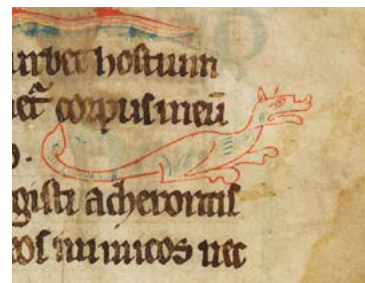 turbet hostium
nec̄ corpus meū
gisti acherontis
eos inimicos nec